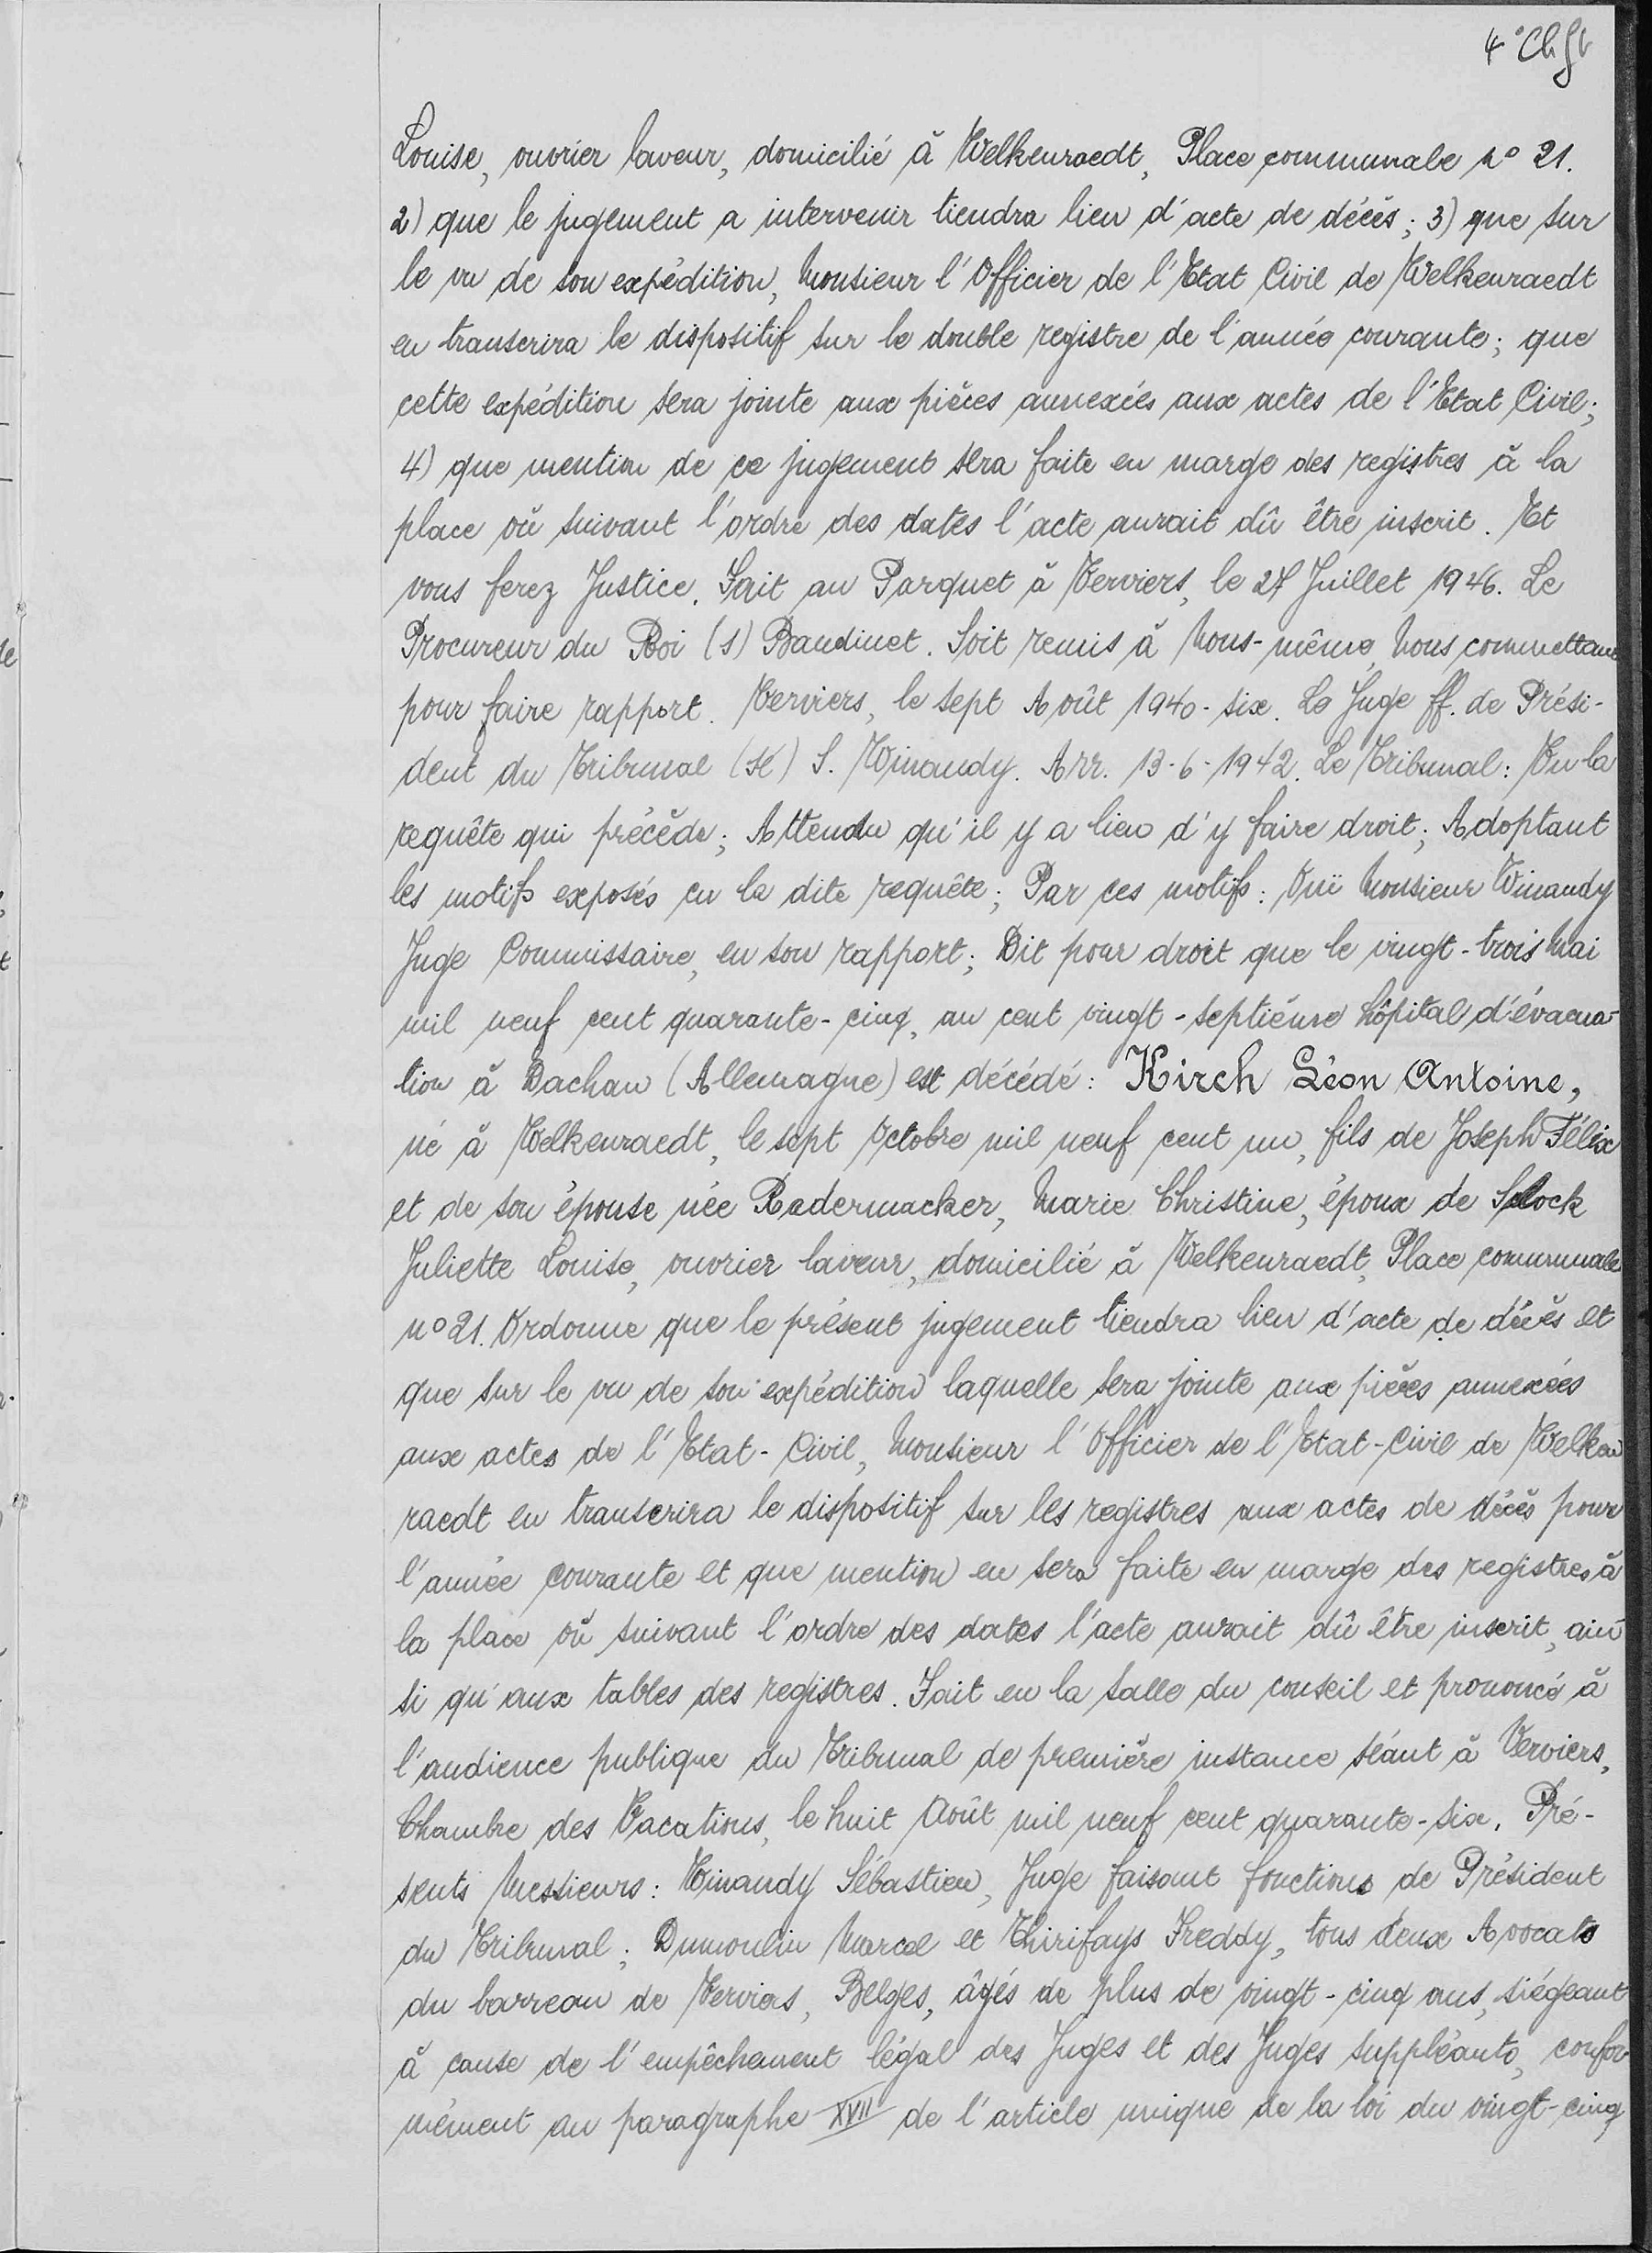 4°
Louise, ouvrier laveur, domicilié à Welkenraedt, Place communale n° 21.
2) que le jugement a intervenir tiendra lieu d'acte de décès; 3) que sur
le vu de son expédition, Monsieur l'Officier de l'Etat Civil de Welkenraedt
en transcrira le dispositif sur le double registre de l'année courante; que
cette expédition sera jointe aux pièces annexées aux actes de l'Etat Civil;
4) que mention de ce jugement sera faite en marge des registres à la
place où suivant l'ordre des dates l'acte aurait dû être inscrit. Et
vous ferez Justice. Fait au Parquet à Verviers, le 27 Juillet 1946. Le
Procureur du Roi (s) Baudinet. Soit remis à Nous-même, Nous commettant
pour faire rapport. Verviers, le sept Août 1940-six. Le Juge ff. de Prési-
dent du Tribunal (sé) S. Winandy. Arr. 13-6-1942. Le Tribunal: Vu la
requête qui précède; Attendu qu'il y a lieu d'y faire droit; Adoptant
les motifs exposés en la dite requête; Par ces motifs: Ouï Monsieur Winandy
Juge Commissaire, en son rapport; Dit pour droit que le vingt-trois Mai
mil neuf cent quarante-cinq, au cent vingt-septième hôpital d'évacua-
tion à Dachau (Allemagne) est décédé: Kirch Léon Antoine,
né à Welkenraedt, le sept Octobre mil neuf cent un, fils de Joseph Félix
et de son épouse née Radermacker, Marie Christine, époux de
Juliette Louise, ouvrier laveur, domicilié à Welkenraedt, Place communale
n° 21. Ordonne que le présent jugement tiendra lieu d'acte de décès et
que sur le vu de son expédition laquelle sera jointe aux pièces annexées
aux actes de l'Etat-Civil, Monsieur l'Officier de l'Etat-Civil de Welken
raedt en transcrira le dispositif sur les registres aux actes de décès pour
l'année courante et que mention en sera faite en marge des registres à
la place où suivant l'ordre des dates l'acte aurait dû être inscrit, ain
si qu'aux tables des registres. Fait en la salle du conseil et prononcé à
l'audience publique du Tribunal de première instance séant à Verviers,
Chambre des Vacations, le huit Août mil neuf cent quarante-six. Pré-
sents Messieurs: Winandy Sébastien, Juge faisant fonctions de Président
du Tribunal; Dumoulin Marcel et Thirifays Freddy, tous deux Avocats
du barreau de Verviers, Belges, âgés de plus de vingt-cinq ans, siégeant
à cause de l'empêchement légal des Juges et des Juges suppléants, confor
mément au paragraphe XVII de l'article unique de la loi du vingt-cinq